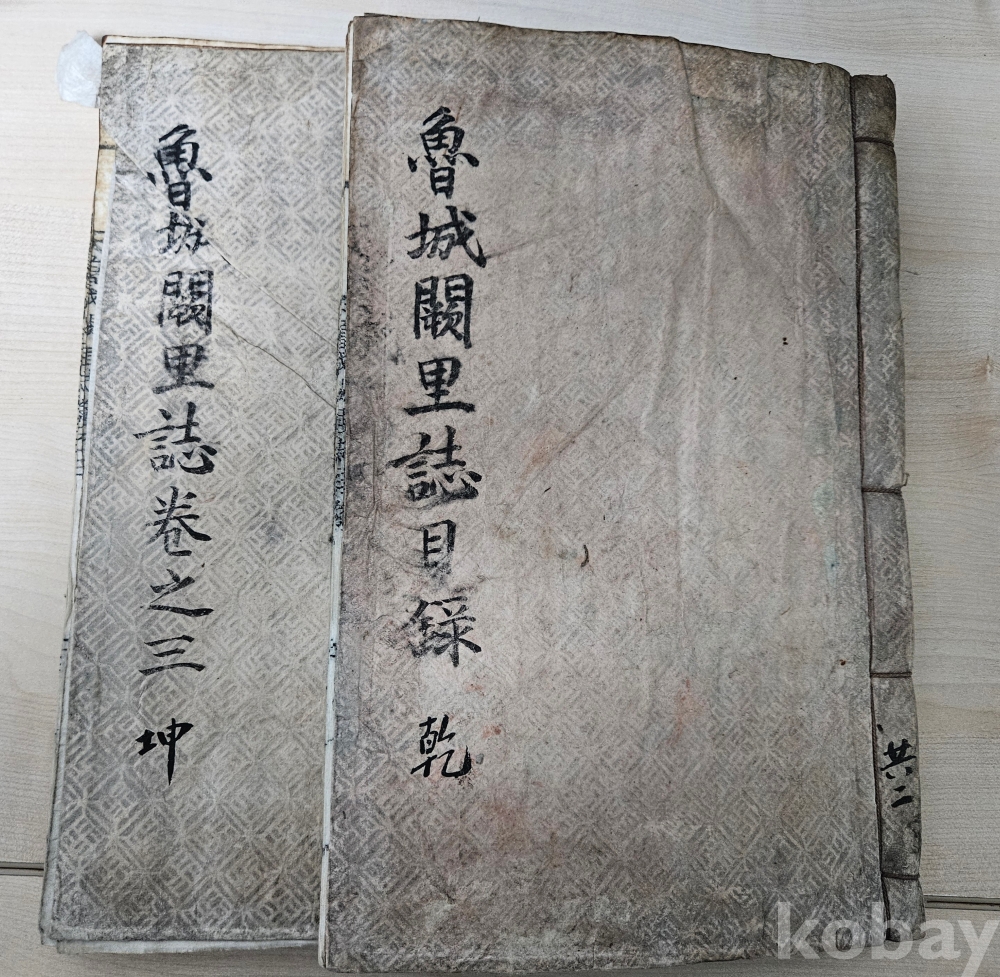 魯城闕里誌目錄 乾
共二
魯城闕里誌卷之三 坤
kobay